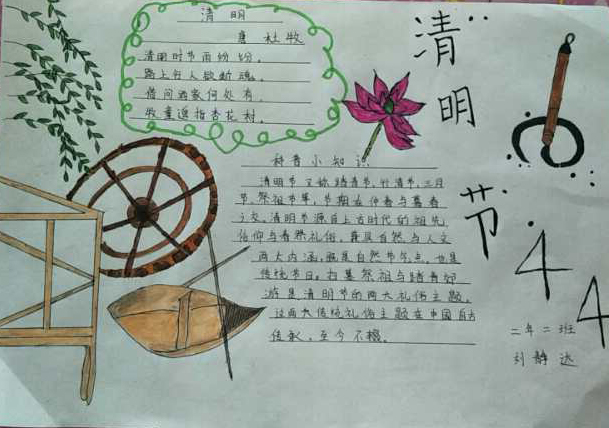 清明
唐 杜牧
清明时节雨纷纷，
路上行人欲断魂。
借问酒家何处有，
牧童遥指杏花村。
清明节
科普小知识
清明节又称踏青节、行清节、三月
节、祭祖节等，节期在仲春与暮春
之交。清明节源自上古时代的祖先
信仰与春祭礼俗，兼具自然与人文
两大内涵，既是自然节气点，也是
传统节日。扫墓祭祖与踏青郊
游是清明节的两大礼俗主题，
这两大传统礼俗主题在中国自古
传承，至今不辍。
4 4
二年二班
刘静达